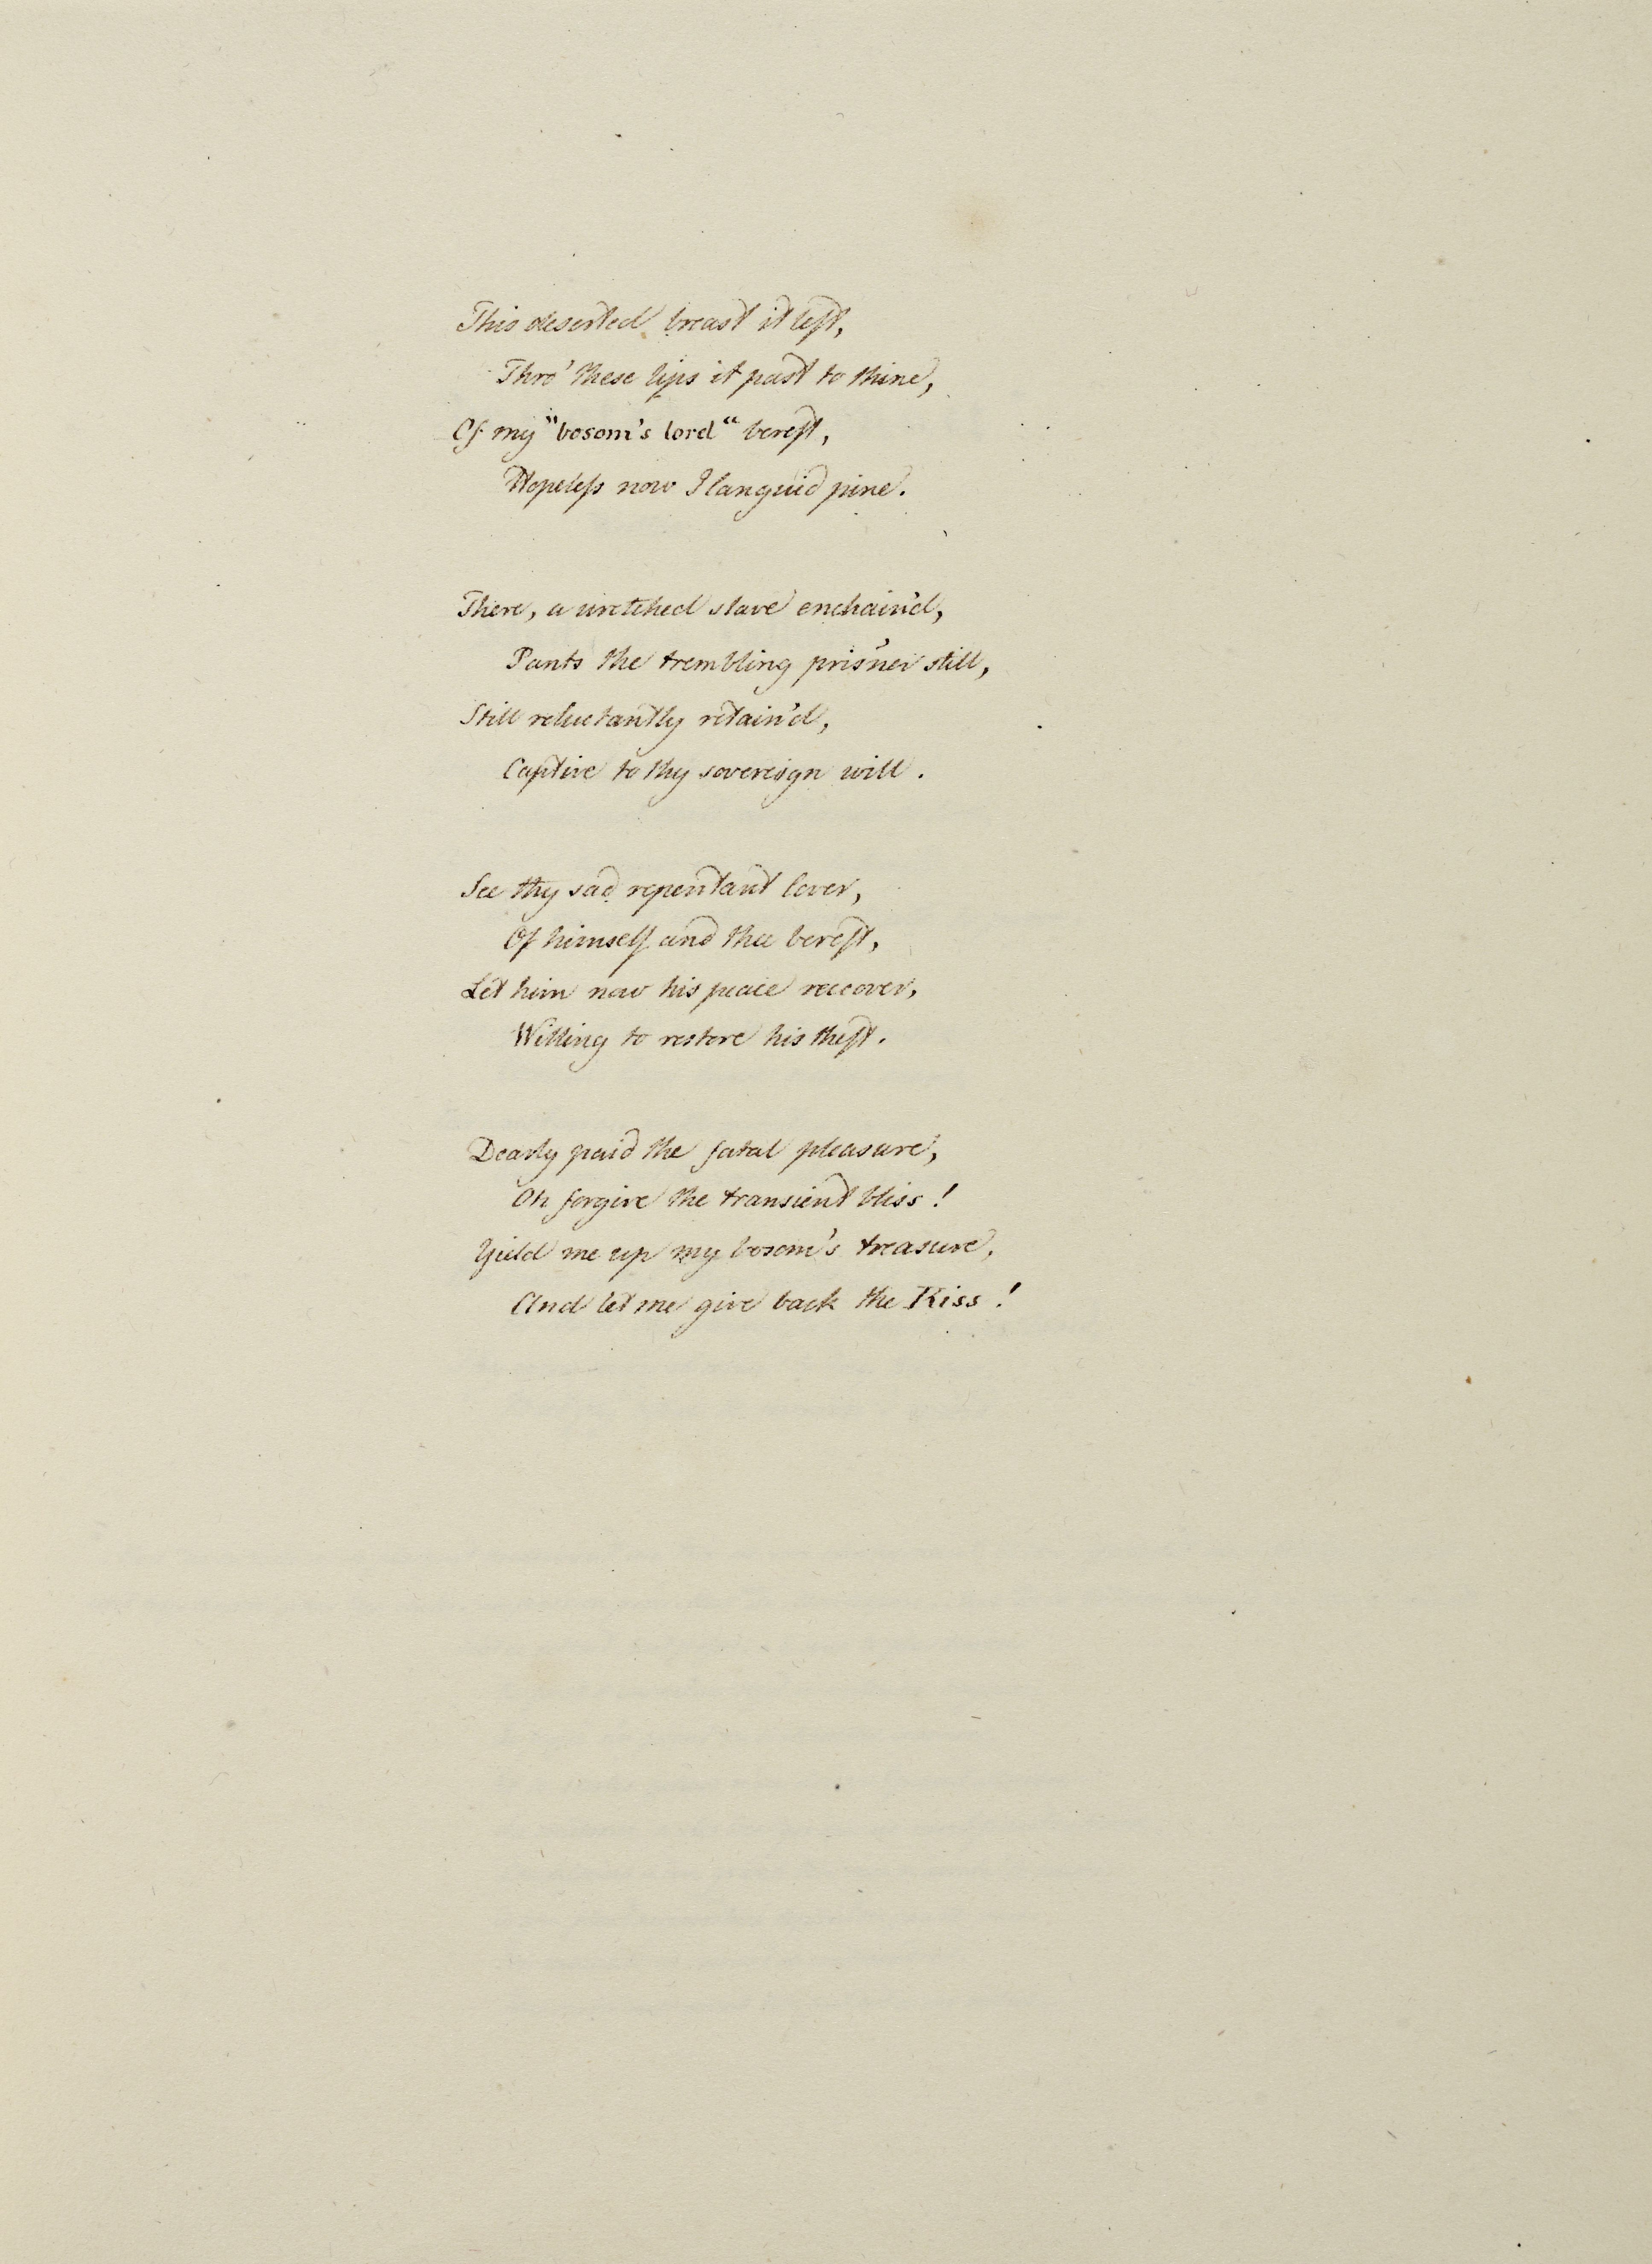 This deserted breast it left,
Thro' these lips it past to thine,
Of my "bosom's lord" bereft,
Hopeless now I languid pine.
There, a wretched slave enchain'd,
Pants the trembling pris'ner still,
Still reluctantly retain'd,
Captive to thy sovereign will.
See thy sad repentant lover,
Of himself and thee bereft,
Let him now his peace recover,
Willing to restore his theft.
Dearly paid the fatal pleasure,
Oh forgive the transient bliss!
Yield me up my bosom's treasure,
And let me give back the Kiss!